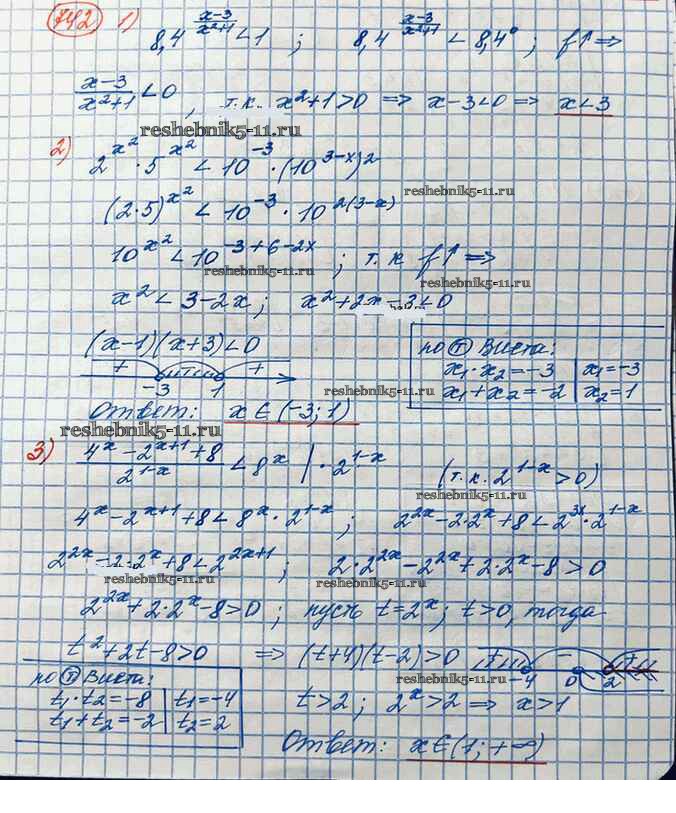 742 1) 8,4^((x-3)/(x²+1)) < 1 ; 8,4^((x-3)/(x²+1)) < 8,4⁰ ; f↑ ⇒
(x-3)/(x²+1) < 0 , т.к. x²+1>0 ⇒ x-3<0 ⇒ x<3
reshebnik5-11.ru
2) 2^(x²) · 5^(x²) < 10^(-3) · (10^(3-x))²
reshebnik5-11.ru
(2·5)^(x²) < 10^(-3) · 10^(2(3-x))
10^(x²) < 10^(-3+6-2x) ; т.к f↑ ⇒
reshebnik5-11.ru
x² < 3-2x ; x²+2x-3<0
(x-1)(x+3)<0
+ - + -3 1
по Т Виета:
x₁·x₂=-3 | x₁=-3
x₁+x₂=-2 | x₂=1
reshebnik5-11.ru
Ответ: x∈(-3;1)
reshebnik5-11.ru
3) (4^x - 2^(x+1) + 8)/(2^(1-x)) < 8^x | · 2^(1-x) (т.к. 2^(1-x) > 0)
reshebnik5-11.ru
4^x - 2^(x+1) + 8 < 8^x · 2^(1-x) ; 2^(2x) - 2·2^x + 8 < 2^(3x) · 2^(1-x)
2^(2x) - 2·2^x + 8 < 2^(2x+1) ; 2·2^(2x) - 2^(2x) + 2·2^x - 8 > 0
reshebnik5-11.ru reshebnik5-11.ru
2^(2x) + 2·2^x - 8 > 0 ; пусть t=2^x ; t>0, тогда
t²+2t-8>0 ⇒ (t+4)(t-2)>0 + - + -4 0 2
reshebnik5-11.ru
по Т Виета:
t₁·t₂=-8 | t₁=-4
t₁+t₂=-2 | t₂=2
t>2 ; 2^x>2 ⇒ x>1
reshebnik5-11.ru
Ответ: x∈(1;+∞)